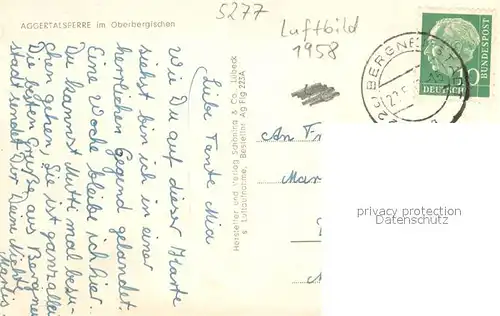 AGGERTALSPERRE im Oberbergischen
5277
Luftbild
1958
BERGNEUSTA
DEUTSCHE
BUNDESPOST
10
Liebe Tante Mia
Wie Du auf dieser Karte
siehst bin ich in einer
herrlichen Gegend gelandet.
Eine Woche bleibe ich hier.
Du kannst Mutti mal besu-
chen gehen, Sie ist ganz allein
Die besten Grüße aus Bergneu
stadt sendet Dir Deine Nichte
Marlis
Hersteller und Verlag Schöning & Co., Lübeck
u. Luftaufnahme, Bestellnr. Ag Flg 223A
An Fr
Mar
privacy protection
Datenschutz